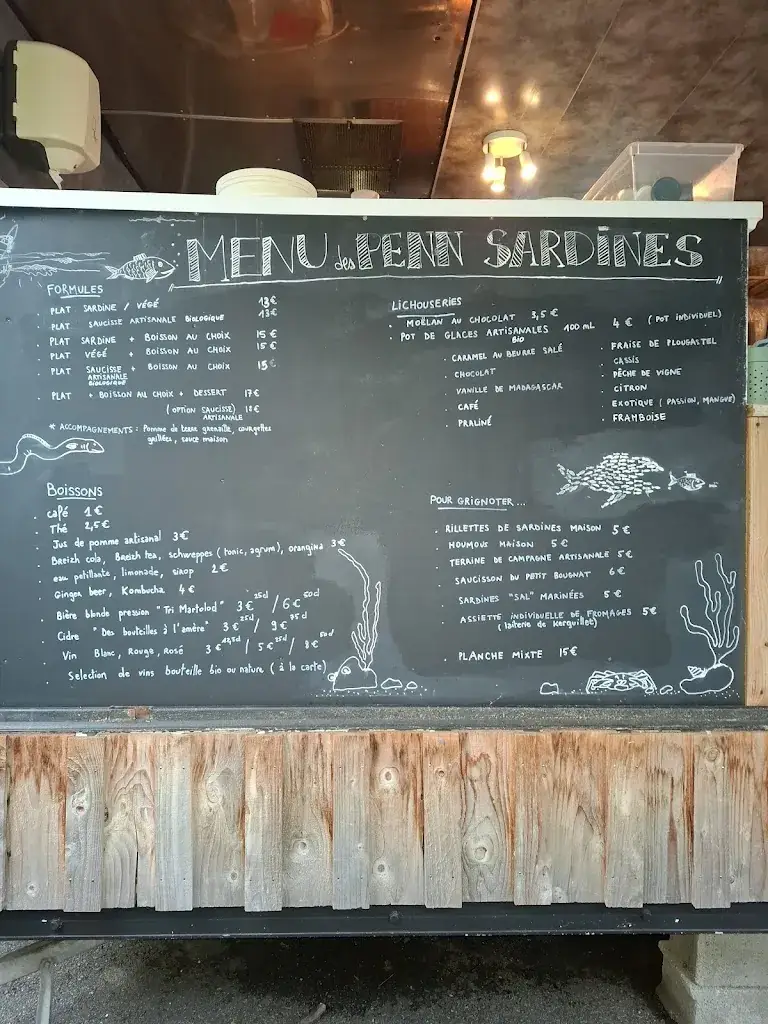 MENU des PENN SARDINES
FORMULES
. PLAT SARDINE / VÉGÉ 13€
. PLAT SAUCISSE ARTISANALE BIOLOGIQUE 13€
. PLAT SARDINE + BOISSON AU CHOIX 15 €
. PLAT VÉGÉ + BOISSON AU CHOIX 15 €
. PLAT SAUCISSE + BOISSON AU CHOIX 15€
ARTISANALE
BIOLOGIQUE
. PLAT + BOISSON AU CHOIX + DESSERT 17 €
(OPTION SAUCISSE) 18 €
ARTISANALE
* ACCOMPAGNEMENTS : Pomme de terre grenaille, courgettes
grillées, sauce maison
BOISSONS
. café 1 €
. Thé 2,5€
. Jus de pomme artisanal 3€
. Breizh cola, Breizh tea, schweppes (tonic, agrum), orangina 3€
. eau petillante, limonade, sirop 2€
. Ginger beer, Kombucha 4 €
. Bière blonde pression "Tri Martolod" 3€ 25cl / 6€ 50cl
. Cidre "Des bouteilles à l'amère" 3€ 25cl / 9€ 75cl
. Vin Blanc, Rouge, Rosé 3€ 12,5cl / 5€ 25cl / 8€ 50cl
. Selection de vins bouteille bio ou nature (à la carte)
LICHOUSERIES
. MOËLLAN AU CHOCOLAT 3,5 €
. POT DE GLACES ARTISANALES 100 mL 4 € (POT INDIVIDUEL)
BIO
. CARAMEL AU BEURRE SALÉ
. CHOCOLAT
. VANILLE DE MADAGASCAR
. CAFÉ
. PRALINÉ
. FRAISE DE PLOUGASTEL
. CASSIS
. PÊCHE DE VIGNE
. CITRON
. EXOTIQUE (PASSION, MANGUE)
. FRAMBOISE
POUR GRIGNOTER...
. RILLETTES DE SARDINES MAISON 5 €
. HOUMOUS MAISON 5 €
. TERRINE DE CAMPAGNE ARTISANALE 5€
. SAUCISSON DU PETIT BOUGNAT 6€
. SARDINES "SAL" MARINÉES 5 €
. ASSIETTE INDIVIDUELLE DE FROMAGES 5€
(laiterie de Kerguillet)
. PLANCHE MIXTE 15€